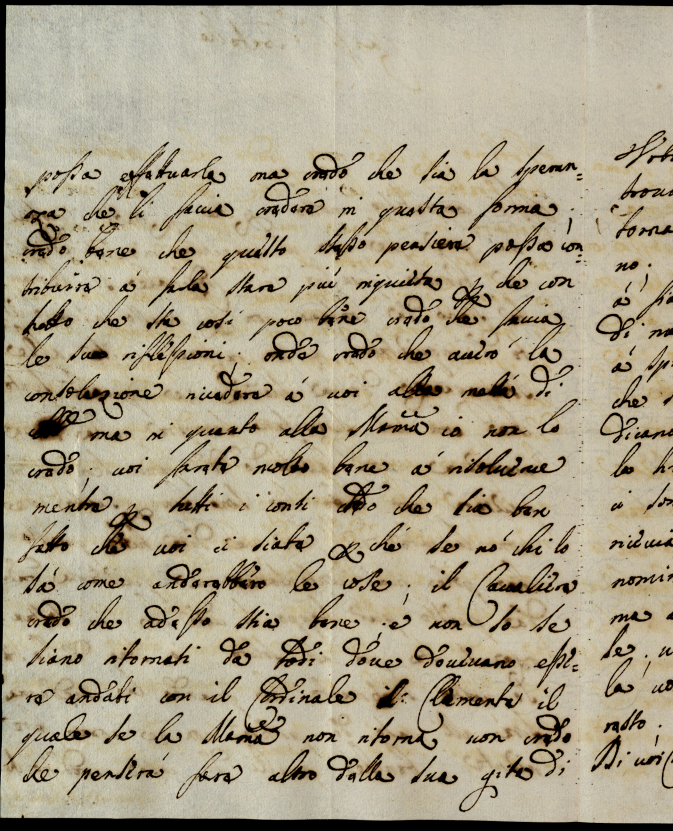 possa effattuarla ma credo che sia la speran=
za che li faccia credere in questa forma;
credo bene che questo stesso pensiere possa con=
tribuire á farla stare piú inquieta, che con
tutto che sta cosí poco bene credo che faccia
le sue riflessioni; onde credo che averó la
consolazione rivedere á voi alla metá di
ma in quanto alla Mamá io non lo
credo; voi farete molto bene á risolvirve
mentre p tutti i conti credo che sia ben
fatto che voi ci siate perché se nó chi lo
sá come anderebbero le cose; il Cavaliere
credo che adesso stia bene; é non só se
siano ritornati da Todi dove dovevano esse=
re andati con il Cardinale il Clemente il
quale se la Mamá non ritorna non credo
che penserá fare altro dalla sua gita di
trova
torna
no;
á
di
á
che
dicano
la
ci
nomin
ma
se
la
resto.
Di voi